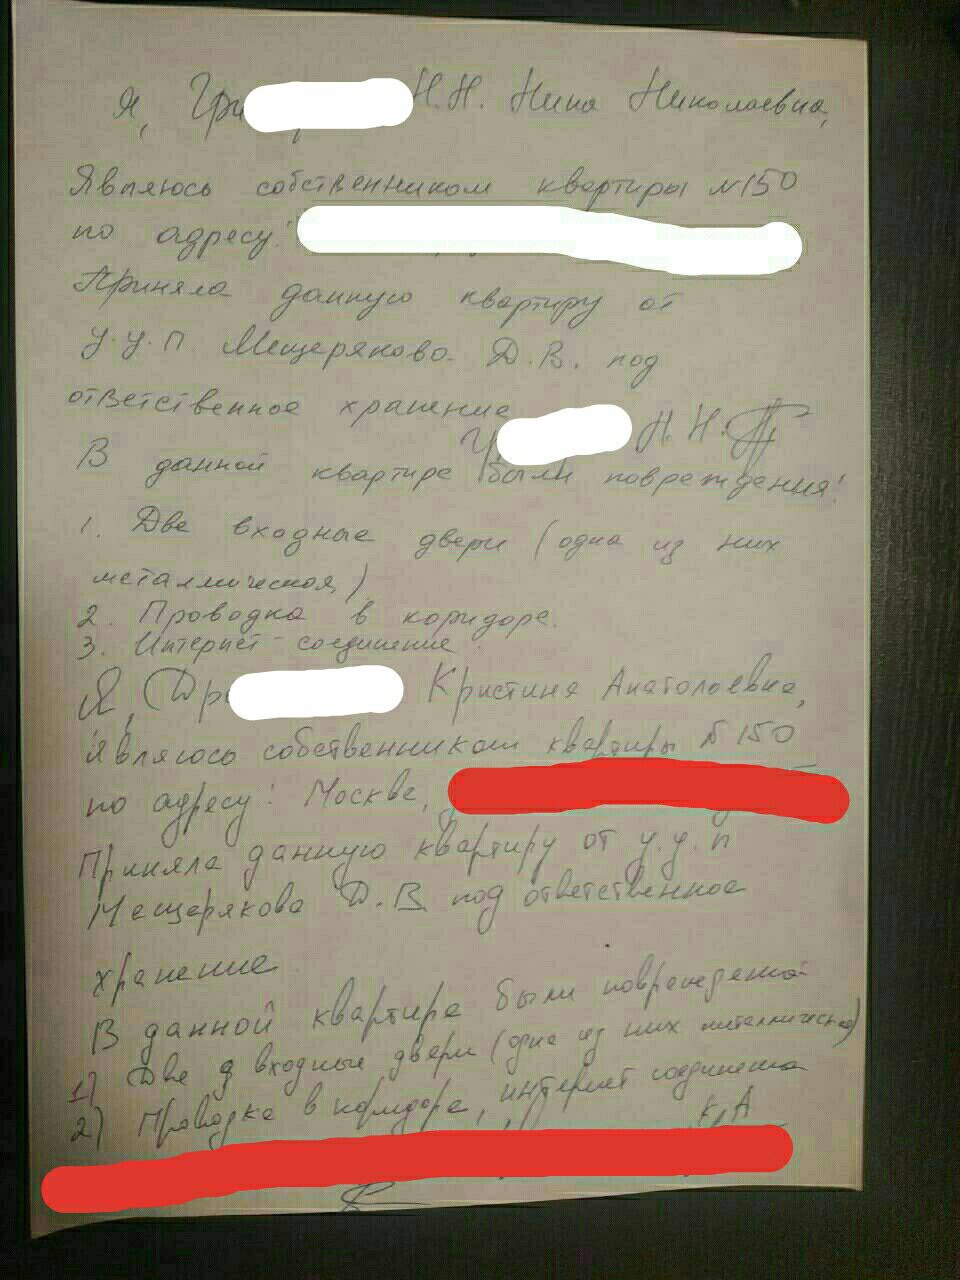 Я, Гри Н.Н. Нина Николаевна,
Являюсь собственником квартиры №150
по адресу:
Приняла данную квартиру от
у.у.п Мещерякова Д.В. под
ответственное хранение
Н.Н.
В данной квартире были повреждения:
1. Две входные двери (одна из них
металлическая)
2. Проводка в коридоре.
3. Интернет-соединение.
Я, Дро Кристина Анатолоевна,
являюсь собственником квартиры №150
по адресу: Москва,
Приняла данную квартиру от у.у.п
Мещерякова Д.В под ответственное
хранение.
В данной квартире были повреждены
1) Две входные двери (одна из них металлическая)
2) Проводка в коридоре, интернет соединение
К.А